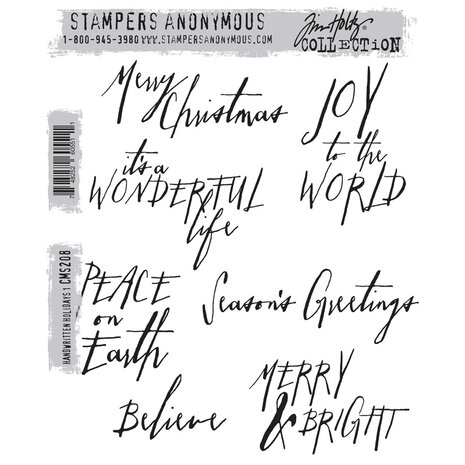 STAMPERS ANONYMOUS
1-800-945-3980 WWW.STAMPERSANONYMOUS.COM
Tim Holtz
COLLECTION
Merry
Christmas
JOY
to the
WORLD
it's a
WONDERFUL
life
PEACE
on
Earth
Season's Greetings
Believe
MERRY
& BRIGHT
HANDWRITTEN HOLIDAYS 1 CMS208